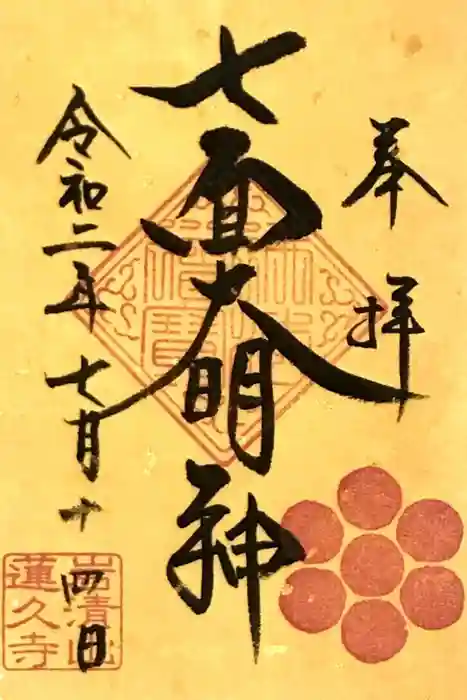 奉拝
七面大明神
令和二年七月十四日
岩清山
蓮久寺